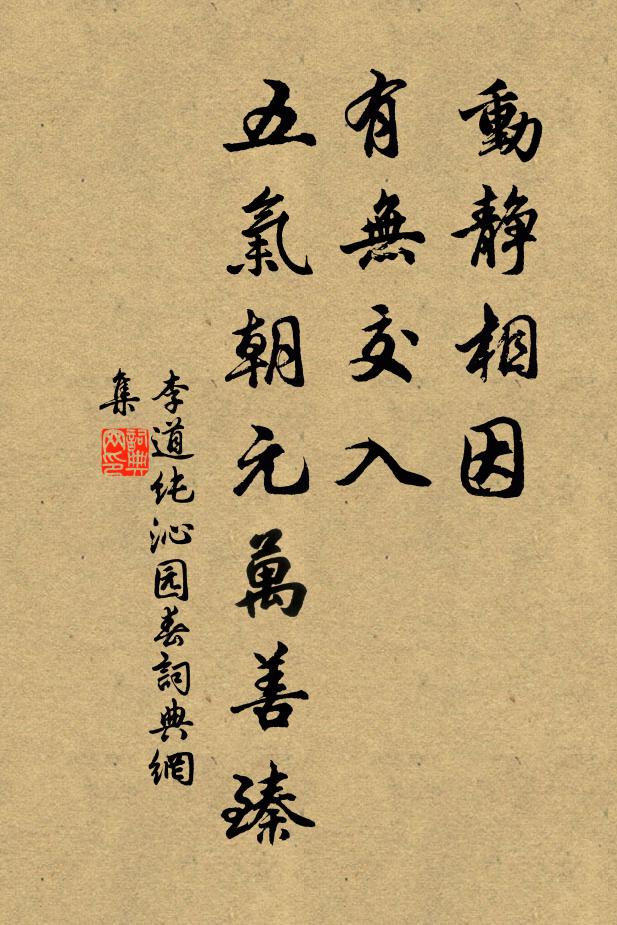 動靜相因
有無交入
五氣朝元萬善臻
李道純沁园春詞典網
集
詞典
网印